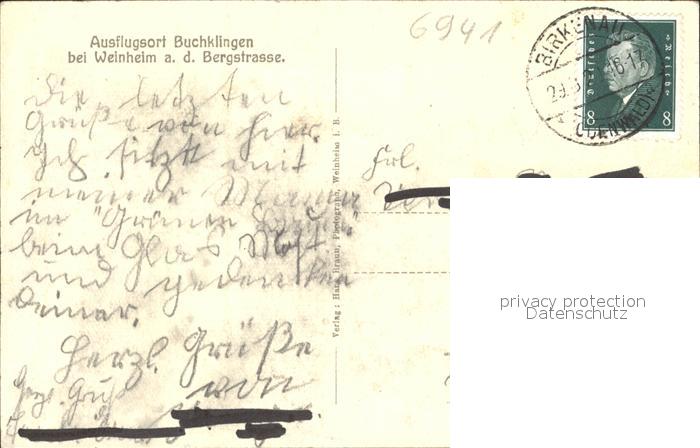 Ausflugsort Buchklingen
bei Weinheim a. d. Bergstrasse.
6941
BIRKENAU
(ODENWALD)
Deutsches Reich
8 8
Die letzten
Grüße von hier.
Ich sitze mit
meiner Mama
im "Grünen Baum"
beim Glas Most
und gedenken
Deiner.
Herzl. Grüße
von
Herzl. Gruß
Frl.
Verlag: Hans Braun, Photograph, Weinheim i. B.
privacy protection
Datenschutz